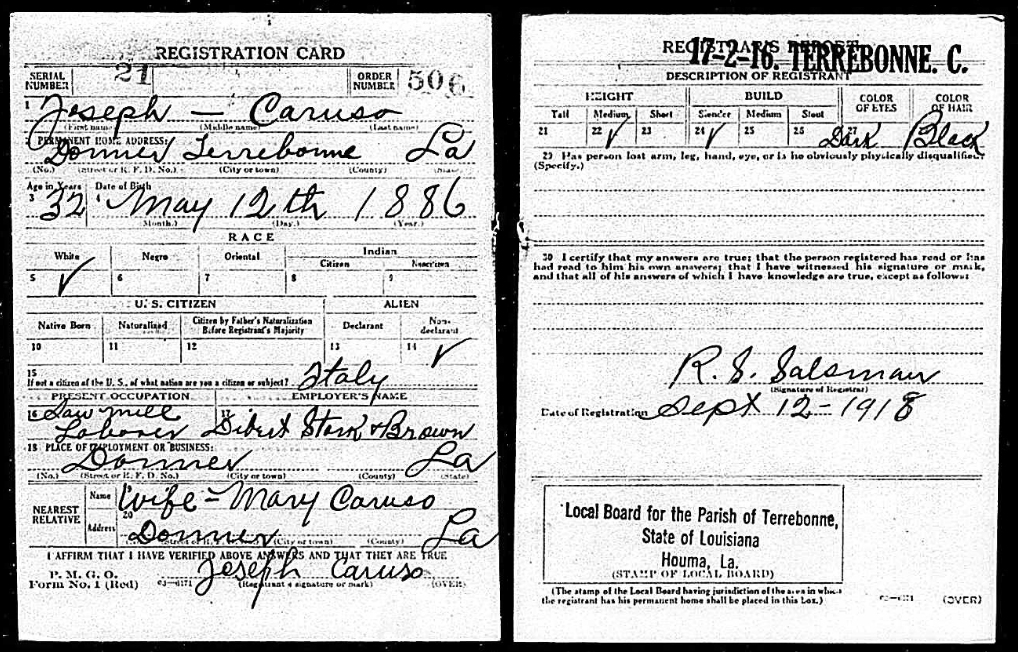 REGISTRATION CARD
SERIAL NUMBER 21 ORDER NUMBER 506
1 Joseph — Caruso
(First name) (Middle name) (Last name)
2 PERMANENT HOME ADDRESS:
Donner Terrebonne La
(No.) (Street or R. F. D. No.) (City or town) (County) (State)
Age in Years Date of Birth
3 32 4 May 12th 1886
(Month.) (Day.) (Year.)
RACE
White Negro Oriental Indian
Citizen Noncitizen
5 ✓ 6 7 8 9
U. S. CITIZEN ALIEN
Native Born Naturalized Citizen by Father's Naturalization Before Registrant's Majority Declarant Non-declarant
10 11 12 13 14 ✓
15
If not a citizen of the U. S., of what nation are you a citizen or subject? Italy
PRESENT OCCUPATION EMPLOYER'S NAME
16 Saw mill
Laborer 17 Dibert Stark & Brown
18 PLACE OF EMPLOYMENT OR BUSINESS:
Donner La
(No.) (Street or R. F. D. No.) (City or town) (County) (State)
NEAREST RELATIVE Name 19 Wife - Mary Caruso
Address 20 Donner La
(City or town) (County)
I AFFIRM THAT I HAVE VERIFIED ABOVE ANSWERS AND THAT THEY ARE TRUE
P. M. G. O.
Form No. 1 (Red) 03-6171 Joseph Caruso
(Registrant's signature or mark) (OVER)
REGISTRAR'S REPORT
17-2-16. TERREBONNE. C.
DESCRIPTION OF REGISTRANT
HEIGHT BUILD COLOR OF EYES COLOR OF HAIR
Tall Medium Short Slender Medium Stout
21 22 ✓ 23 24 ✓ 25 26 27 Dark Black
29 Has person lost arm, leg, hand, eye, or is he obviously physically disqualified?
(Specify.)
30 I certify that my answers are true; that the person registered has read or has
had read to him his own answers; that I have witnessed his signature or mark,
and that all of his answers of which I have knowledge are true, except as follows:
R. S. Salsman
(Signature of Registrar)
Date of Registration Sept 12-1918
Local Board for the Parish of Terrebonne,
State of Louisiana
Houma, La.
(STAMP OF LOCAL BOARD)
(The stamp of the Local Board having jurisdiction of the area in which
the registrant has his permanent home shall be placed in this box.)
03-6171 (OVER)